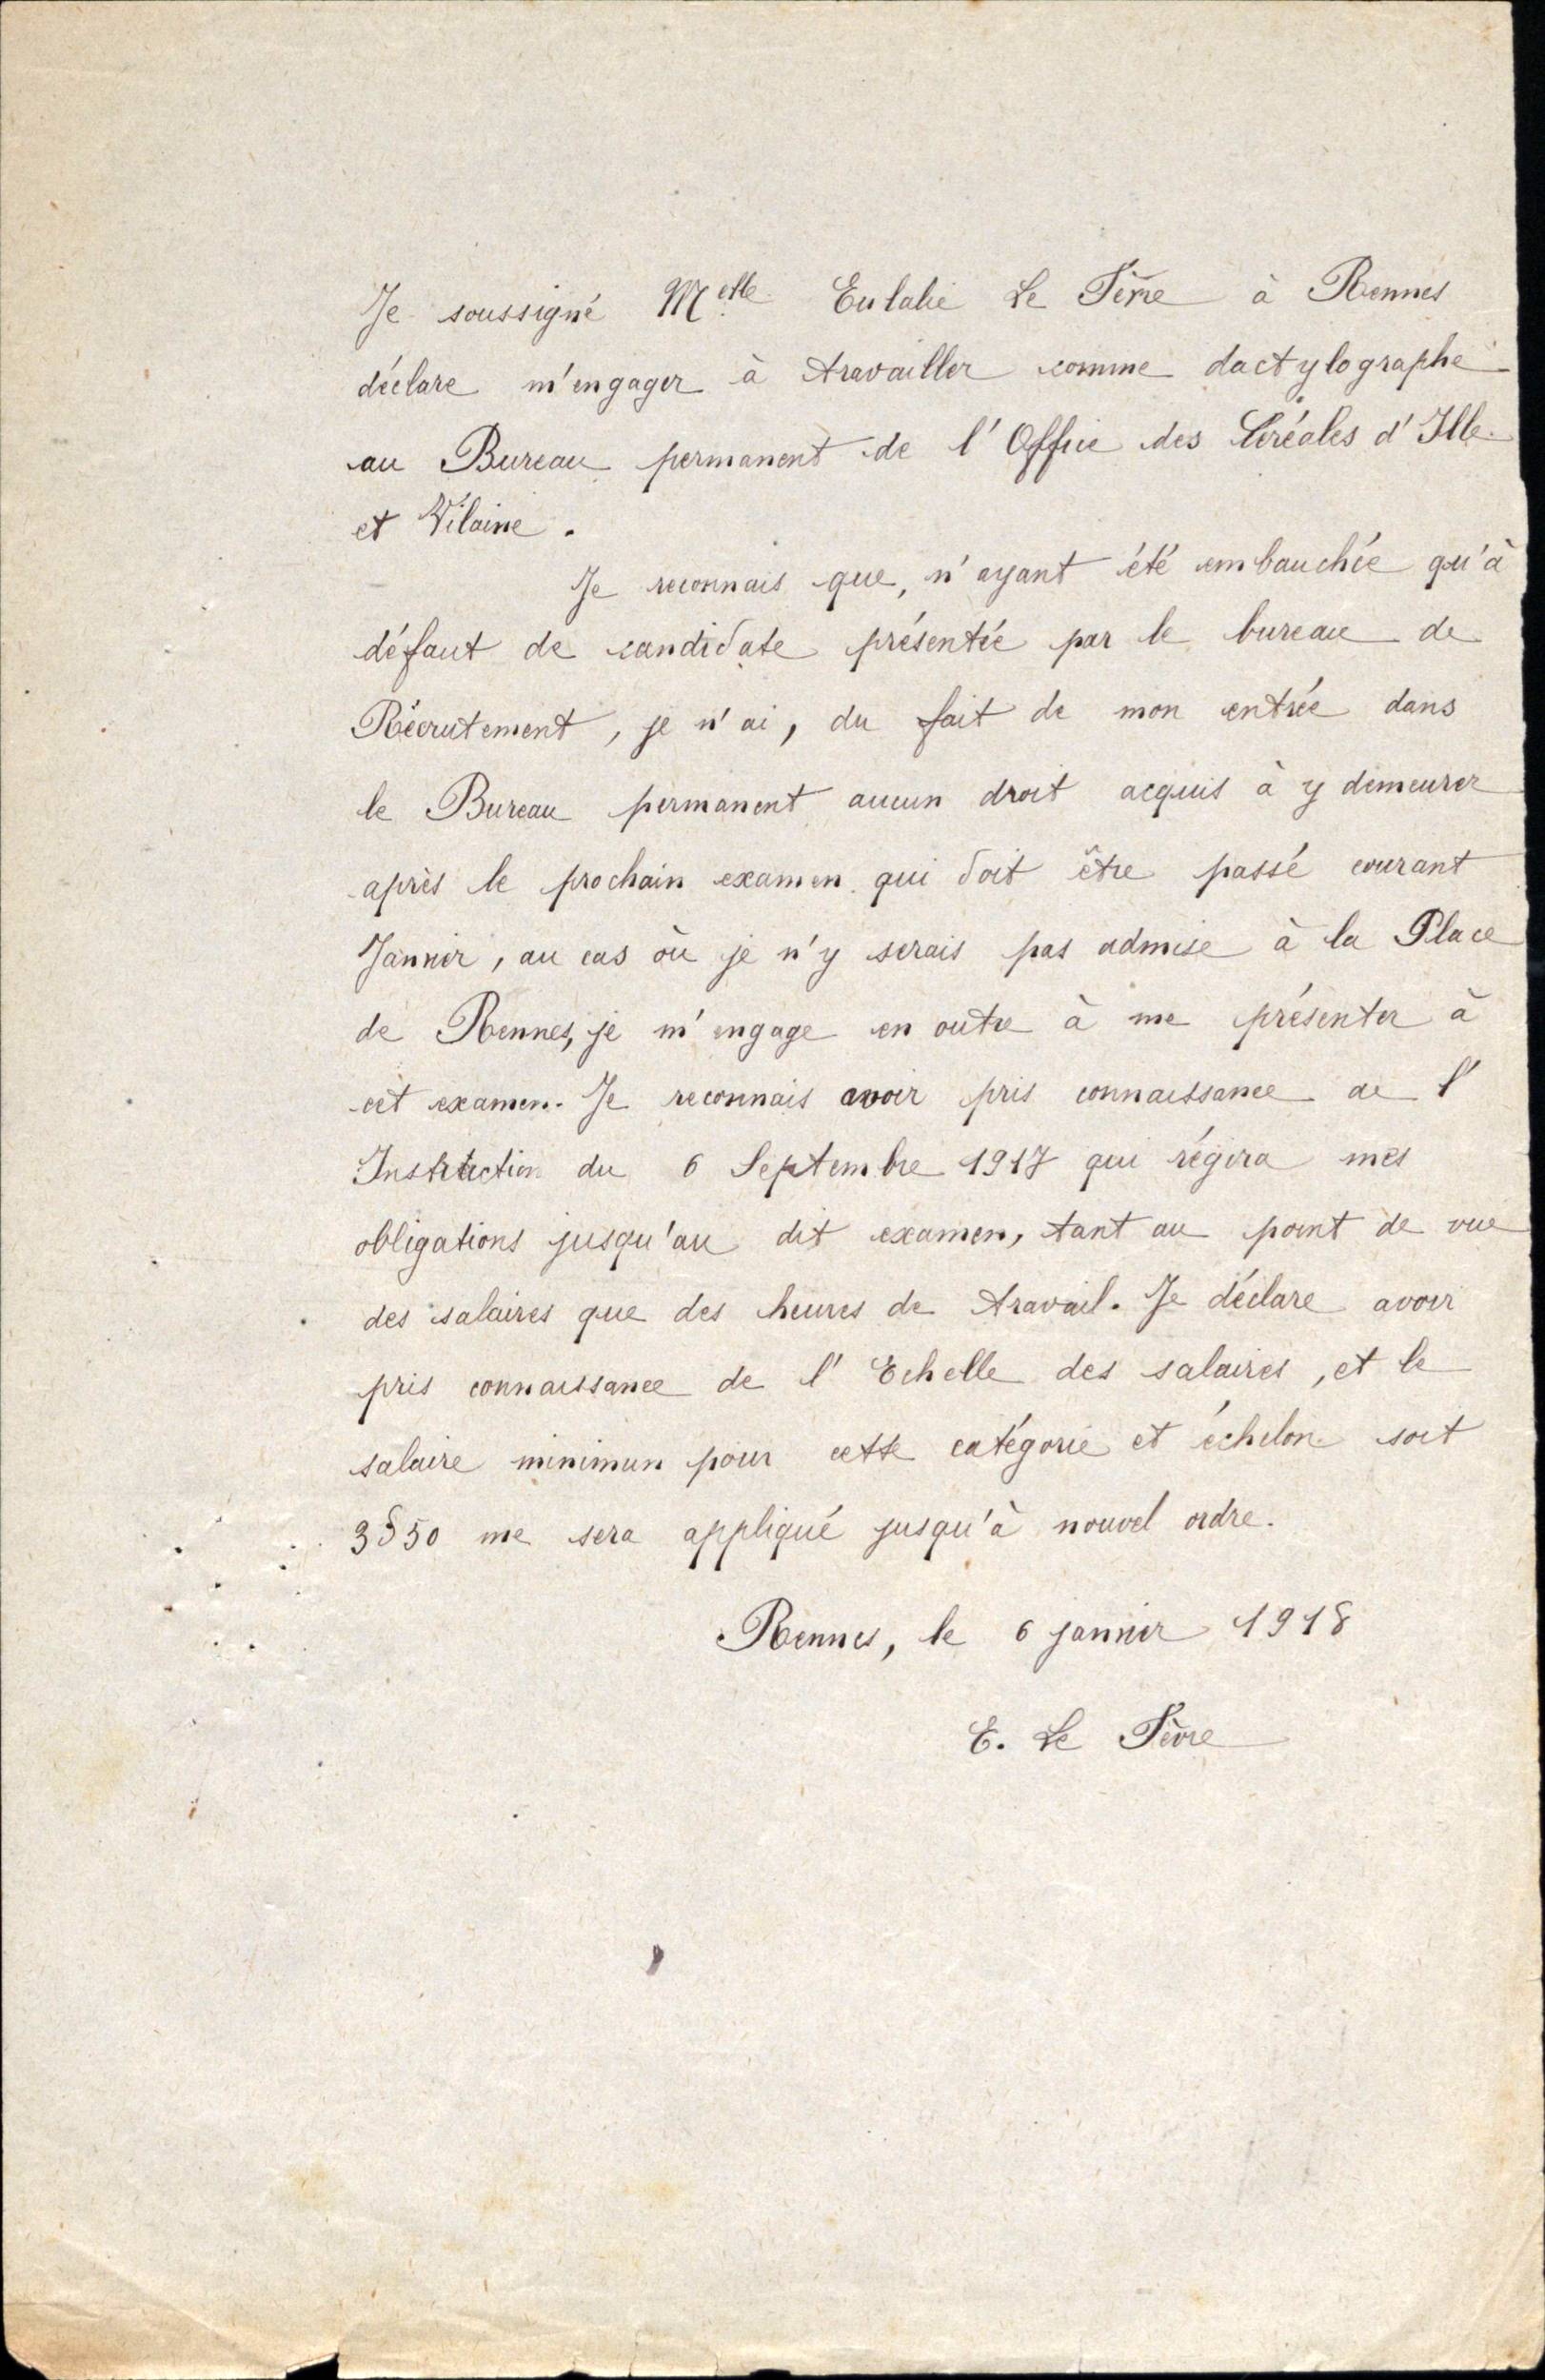 Je soussigné Melle Eulalie Le Fèvre à Rennes
déclare m'engager à travailler comme dactylographe
au Bureau permanent de l'Office des Céréales d'Ille
et Vilaine.
Je reconnais que, n'ayant été embauchée qu'à
défaut de candidate présentée par le bureau de
Récrutement, je n'ai, du fait de mon entrée dans
le Bureau permanent aucun droit acquis à y demeurer
après le prochain examen qui doit être passé courant
Janvier, au cas où je n'y serais pas admise à la Place
de Rennes, je m'engage en outre à me présenter à
cet examen. Je reconnais avoir pris connaissance de l'
Instruction du 6 Septembre 1917 qui régira mes
obligations jusqu'au dit examen, tant au point de vue
des salaires que des heures de travail. Je déclare avoir
pris connaissance de l'Echelle des salaires, et le
salaire minimun pour cette catégorie et échelon soit
3f50 me sera appliqué jusqu'à nouvel ordre.
Rennes, le 6 janvier 1918
E. Le Fèvre